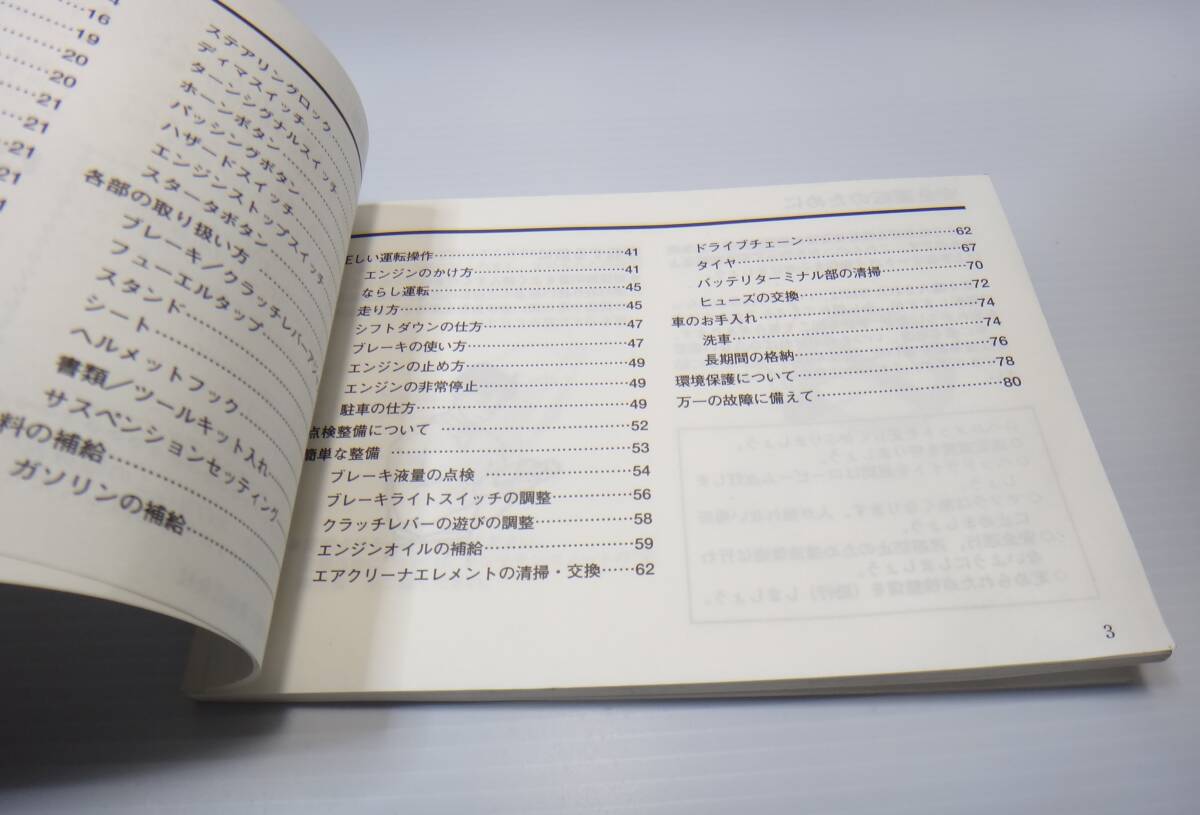 16
19
20
20
21
21
21
21
ステアリングロック
ディマスイッチ
ターンシグナルスイッチ
ホーンボタン
パッシングボタン
ハザードスイッチ
エンジンストップスイッチ
スタータボタン
各部の取り扱い方
ブレーキ/クラッチレバーア
フューエルタップ
スタンド
シート
ヘルメットフック
書類/ツールキット入れ
サスペンションセッティング
料の補給
ガソリンの補給
正しい運転操作 41
エンジンのかけ方 41
ならし運転 45
走り方 45
シフトダウンの仕方 47
ブレーキの使い方 47
エンジンの止め方 49
エンジンの非常停止 49
駐車の仕方 49
点検整備について 52
簡単な整備 53
ブレーキ液量の点検 54
ブレーキライトスイッチの調整 56
クラッチレバーの遊びの調整 58
エンジンオイルの補給 59
エアクリーナエレメントの清掃・交換 62
ドライブチェーン 62
タイヤ 67
バッテリターミナル部の清掃 70
ヒューズの交換 72
車のお手入れ 74
洗車 74
長期間の格納 76
環境保護について 78
万一の故障に備えて 80
3